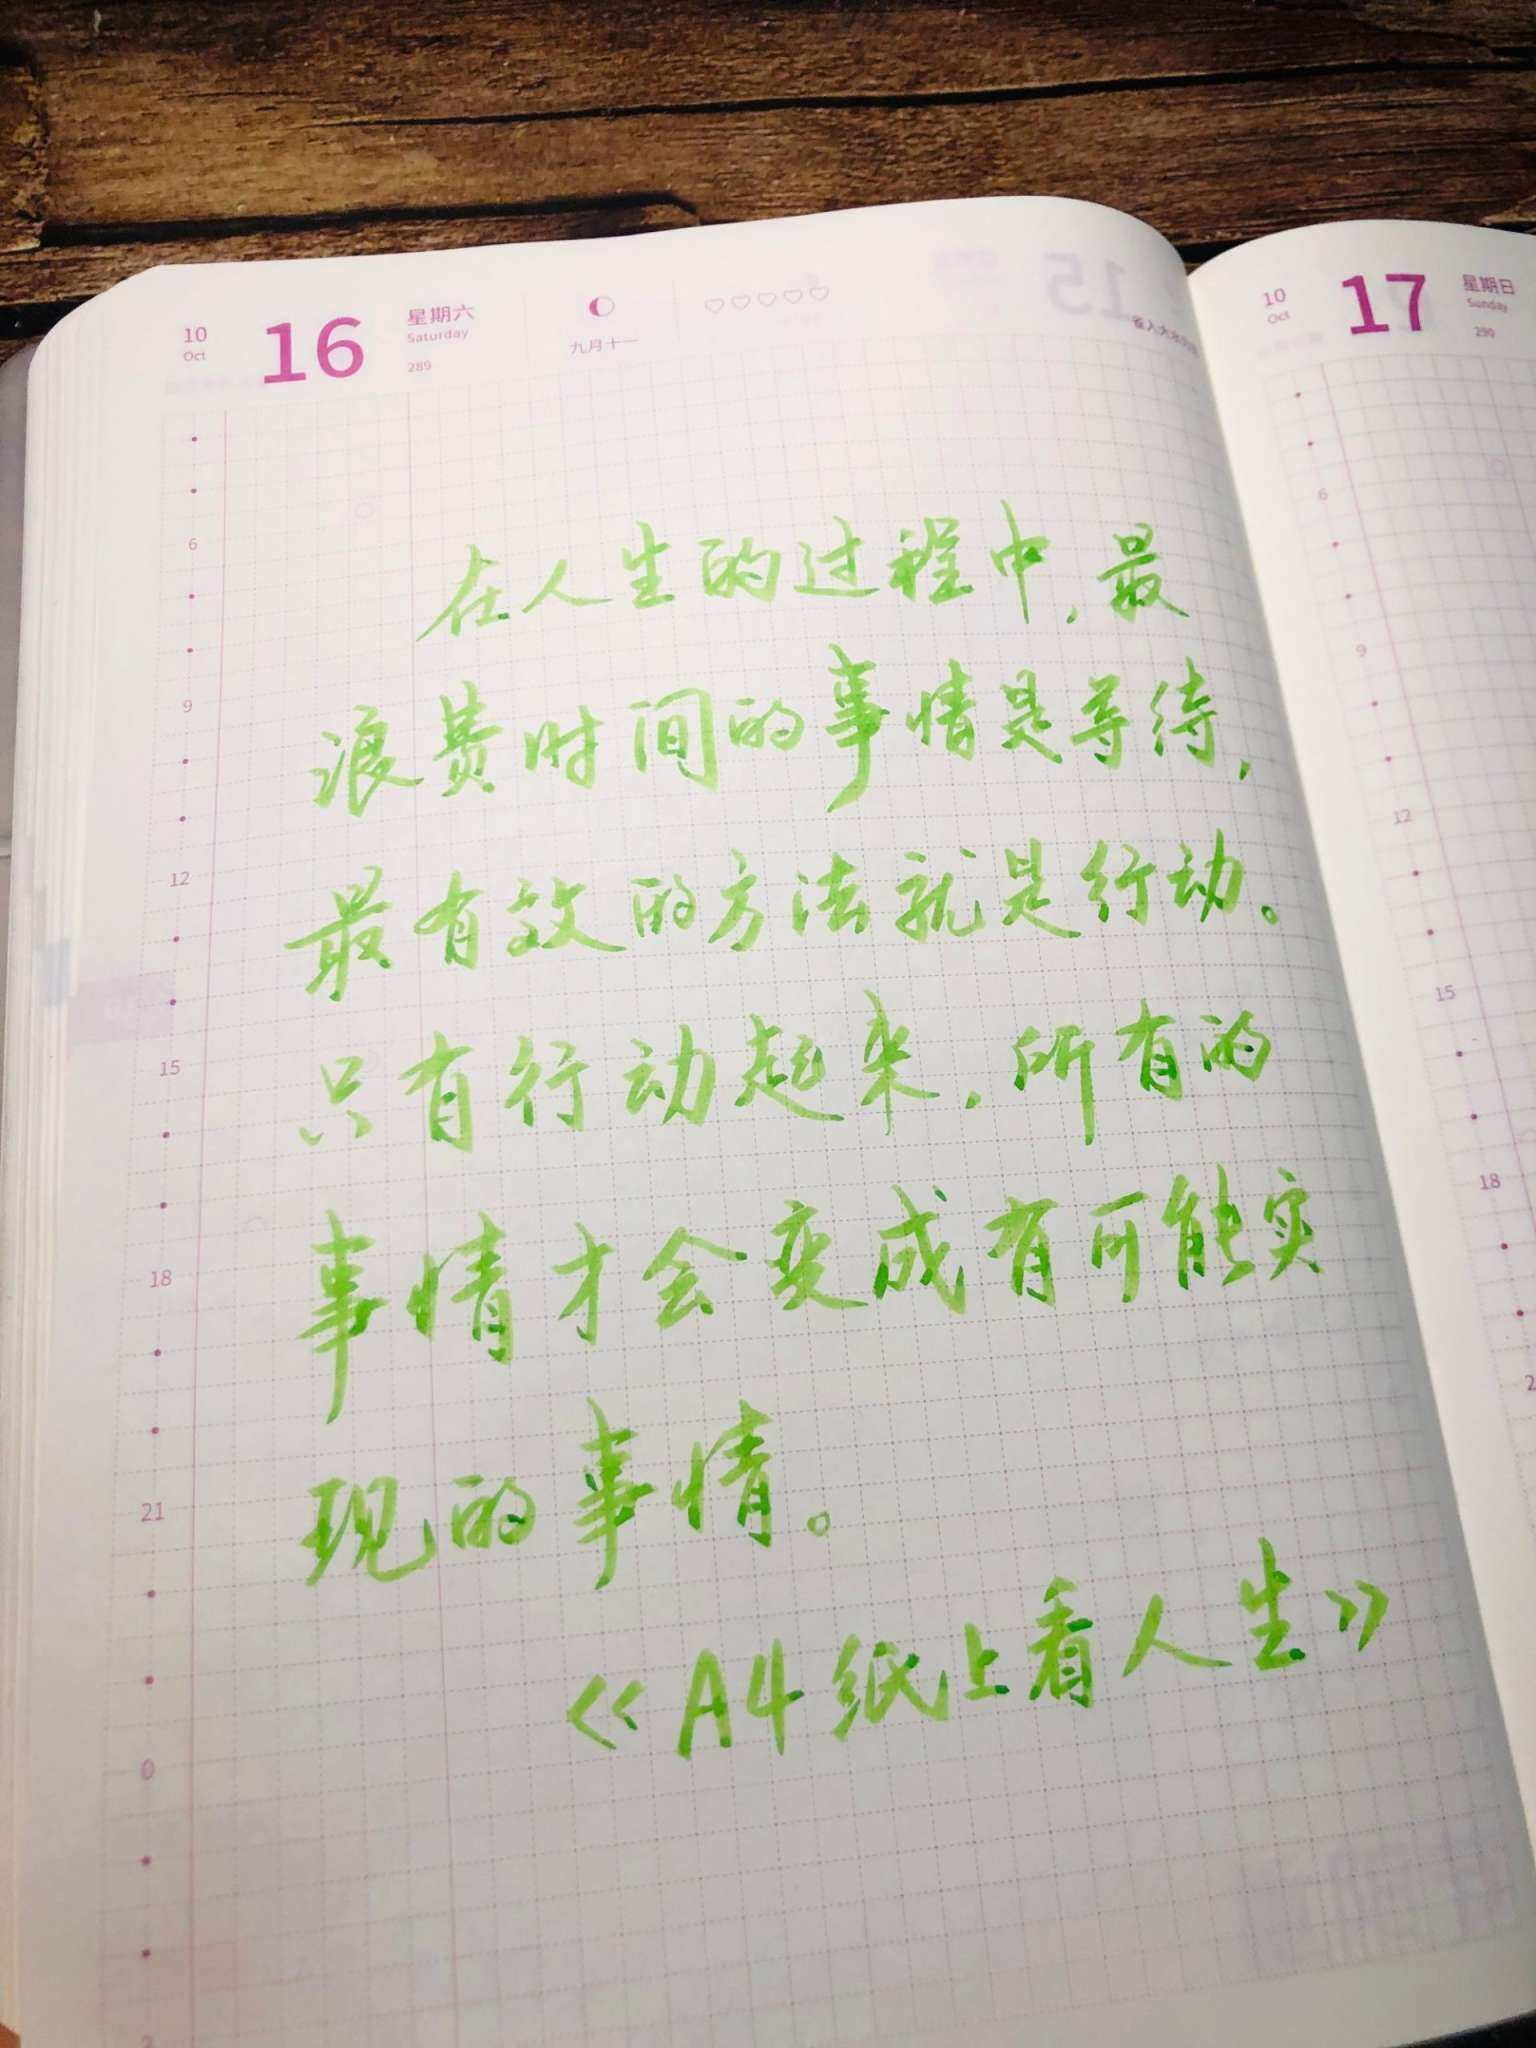 10
Oct
16
星期六
Saturday
289
九月十一
10
Oct
17
星期日
Sunday
290
在人生的过程中,最
浪费时间的事情是等待,
最有效的方法就是行动。
只有行动起来,所有的
事情才会变成有可能实
现的事情。
《A4纸上看人生》
6
9
12
15
18
21
0
2
6
9
12
15
18